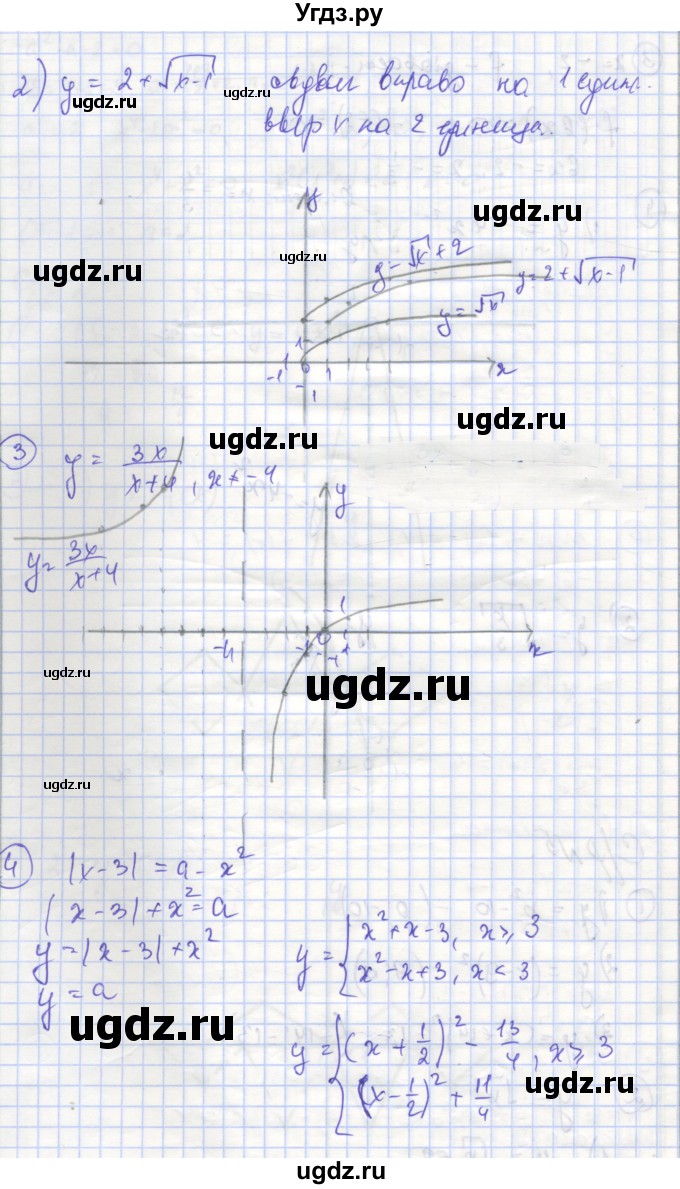 Угдз.ру
2) y = 2 + √x-1 сдвиг вправо на 1 един.
вверх на 2 единица.
ugdz.ru
ugdz.ru
y
ugdz.ru
ugdz.ru
ugdz.ru
y=√x+2
y=2+√x-1
y=√x
1
-1 0 1 x
-1
ugdz.ru
ugdz.ru
3 y = 3x/x+4, x ≠ -4
y
y=3x/x+4
1
-4 -1 0 1 x
-1
ugdz.ru
ugdz.ru
ugdz.ru
ugdz.ru
4 |x-3| = a - x²
|x-3|+x²=a
y=|x-3|+x²
y=a
y={x²+x-3, x≥3
x²-x+3, x<3
ugdz.ru
y={(x+1/2)² - 13/4, x≥3
(x-1/2)² + 11/4
ugdz.ru
ugdz.ru